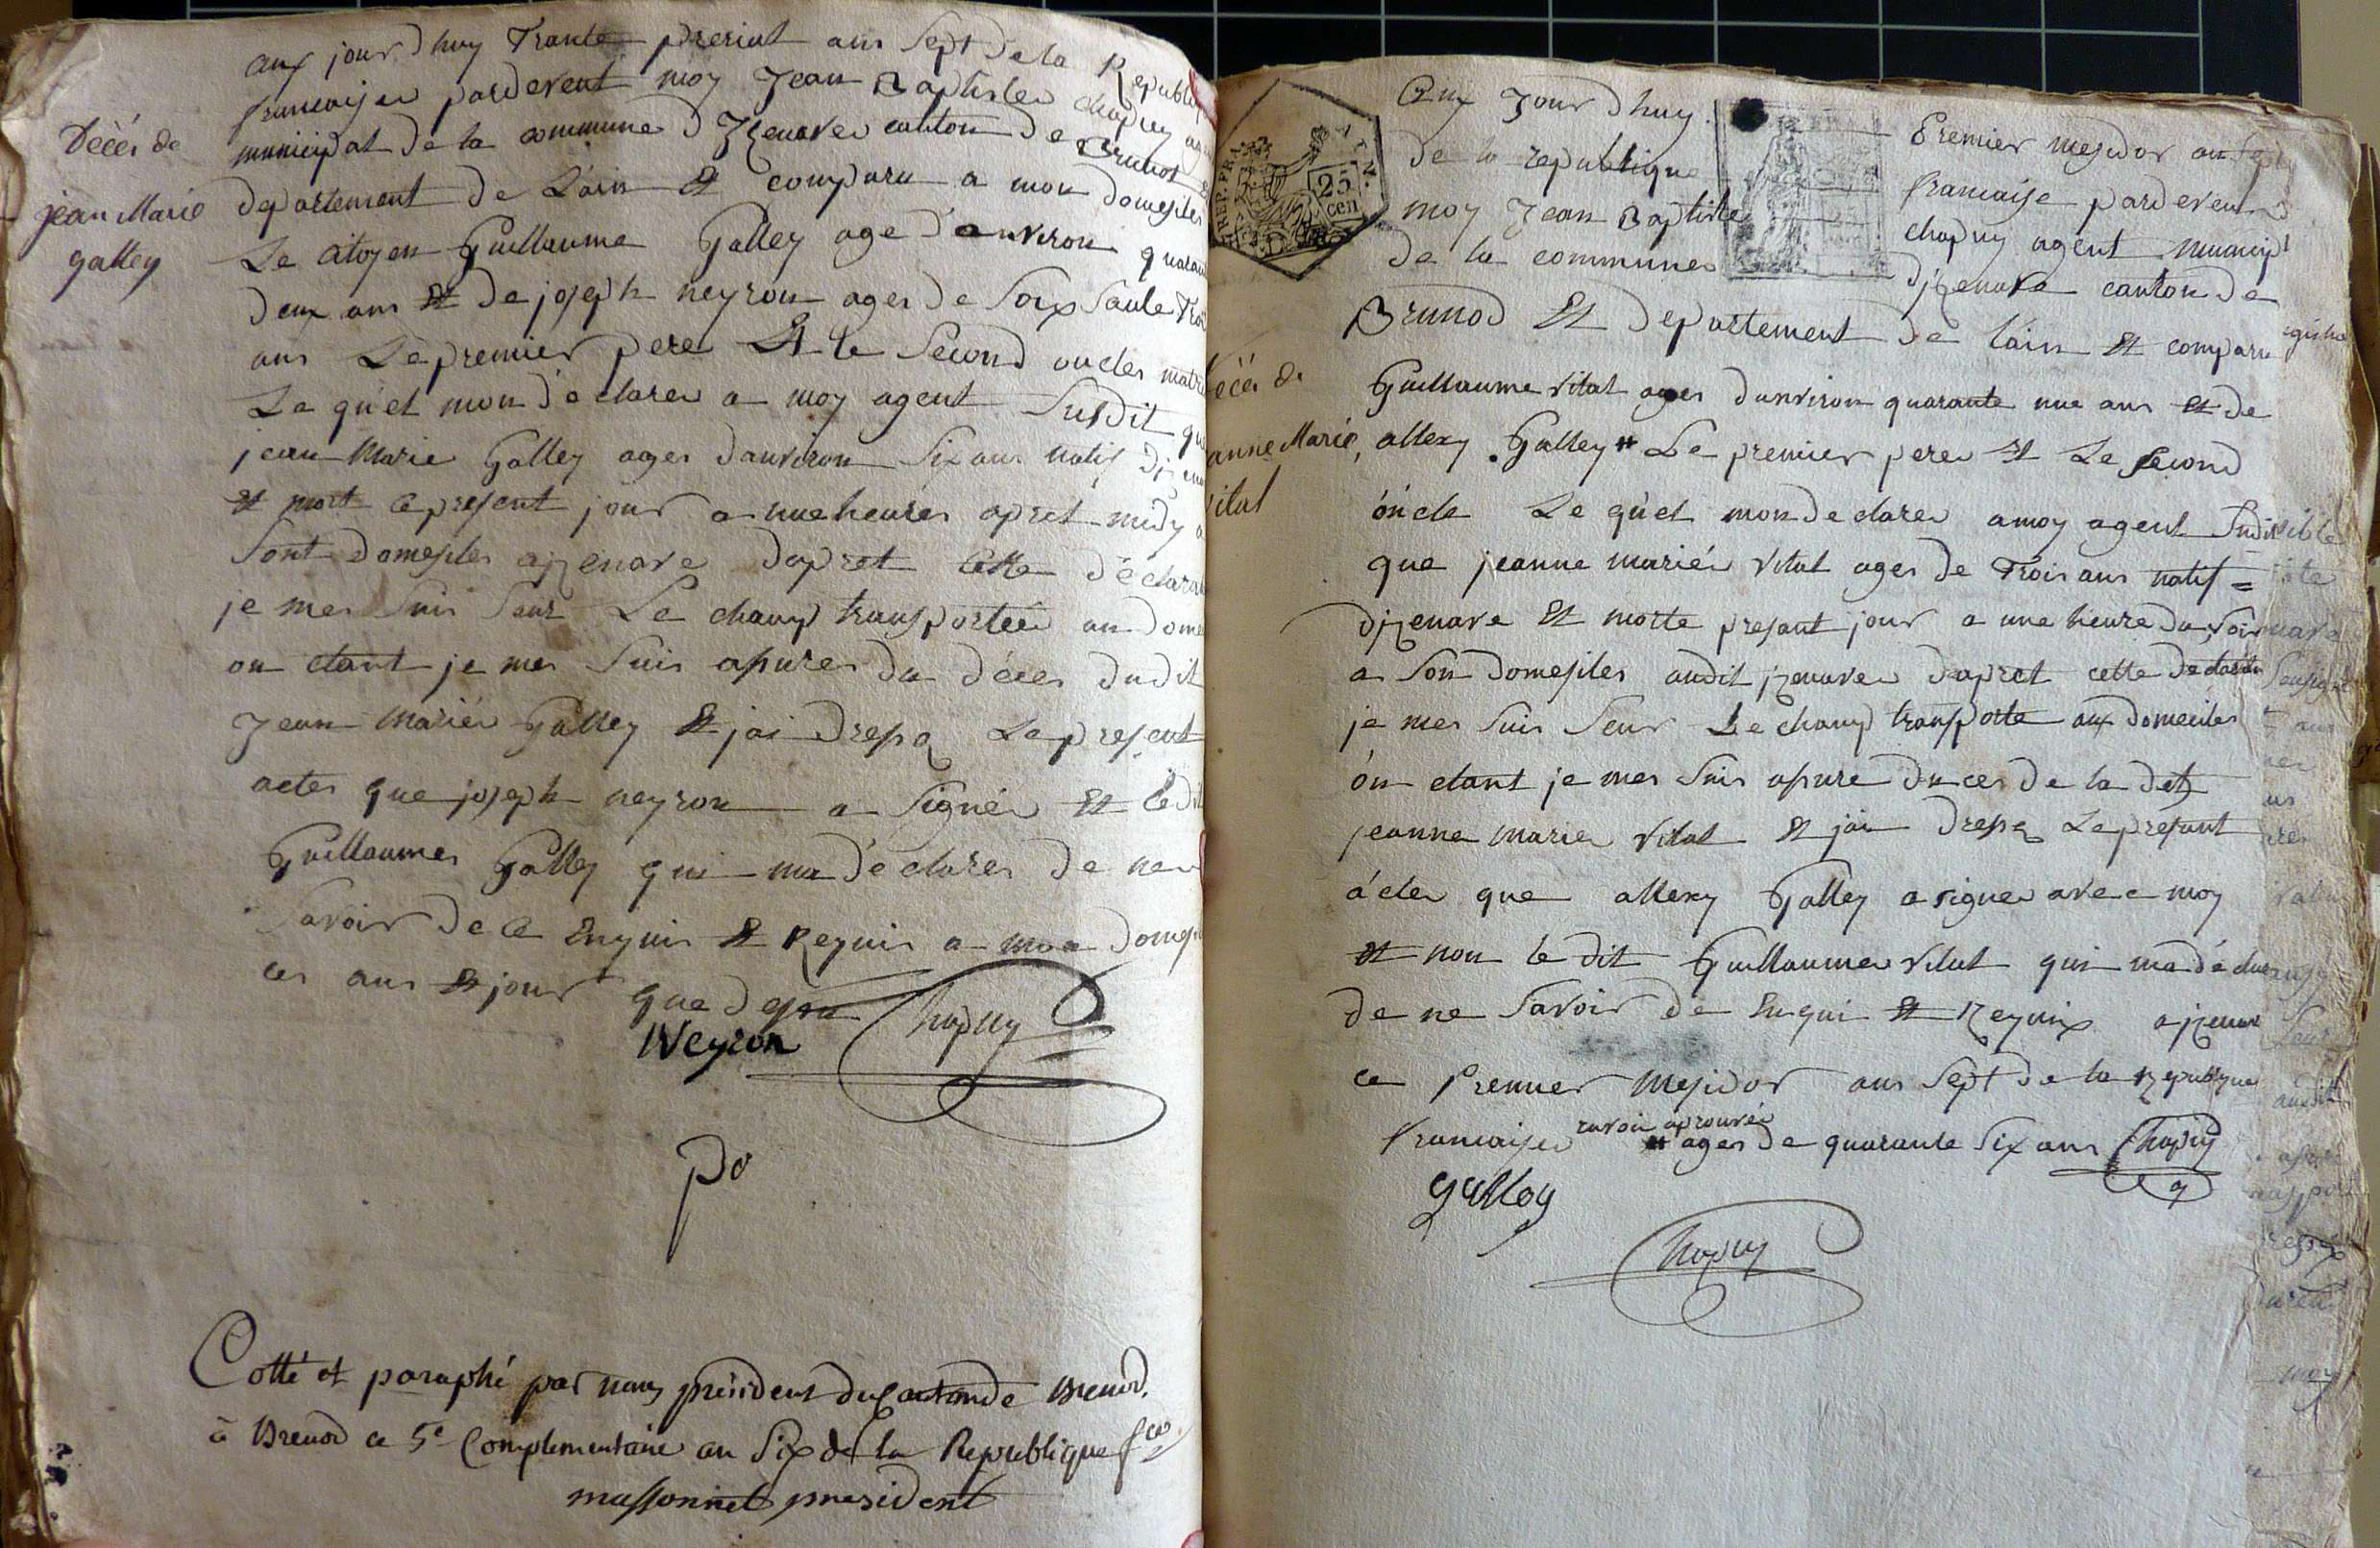 aux jour d huy Trante prerial ans Sept de la Republi
francaiser pardevent moy Jean Baptister chapuy
municipal de la commune d Izenaver canton de Brunod
departement de L'ain Et comparu a mon domesiler
Le citoyen Guillaume Galley age d'anviron quarant
deux ans Et de joseph neyron ager de Soix Sante Troi
ans Le premier perer Et le Second oncler
Le qu'el mon d'eclarer a moy agent Susdit que
jean Marie Galley ager danviron Six ans natif
Et mort ce present jour a une heurer apret midy a
Sont domesiler a izenave dapret cette d'eclara
je mer Suis Seur Le champ transportéer au dome
ou etant je mer Suis apurer du décer dudit
Jean Mariér Galley Et jai dressa Le present
acter que joseph neyron a Signér Et le dit
Guillaumer Galley qui ma d'eclarer de ne
Savoir de ce Enquis Et Requis a mon domesi
ces ans Et jour que desu
Neyron Chapuy
po
Cotté et paraphé par nous président du Canton de Brenod.
à Brenod ce 5e Complementaire an Six de la Republique fce
massonnet president
Décér de
jean Marie
galley
Aux Jour d huy Premier mesidor an Sept
de la republique francaise pardeven
moy Jean Baptiste chapuy agent municip
de la commune d'izenave canton de
REP. FRA.
25
cen
Brunod Et departement de lain Et comparu
Guillaume Vital ager danviron quarante une ans Et de
allexy Galley # Le premier perer Et Le Second
óncle Le qu'el mon declarer a moy agent Sudit
que jeanne mariér Vital ager de Trois ans natif =
d'izenave Et morte present jour a une heure du Soir
a Son domesiler audit izenaver dapret cette
je mer Suis Seur Le champ transporte aux domeciler
ón etant je mer Suis apure du cer de la det
jeanne marier Vital Et jai dressa Le present
ácter que allexy Galley a signer avec moy
Et non le dit Guillaumer Vital qui ma dé
de ne Savoir de Enqui Et Requix a izenave
ce Premier Mesidor ans Sept de la Republique
francaiser # ager de quarante Six ans Chapuy
galley
Chapuy
écér de
anne Marie
ital